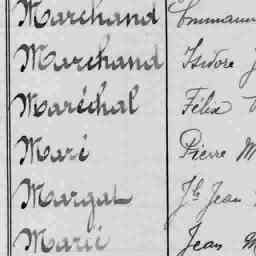 Marchand Emmanu
Marchand Isidore J
Maréchal Félix
Mari Pierre M
Margat Jh Jean
Marié Jean M